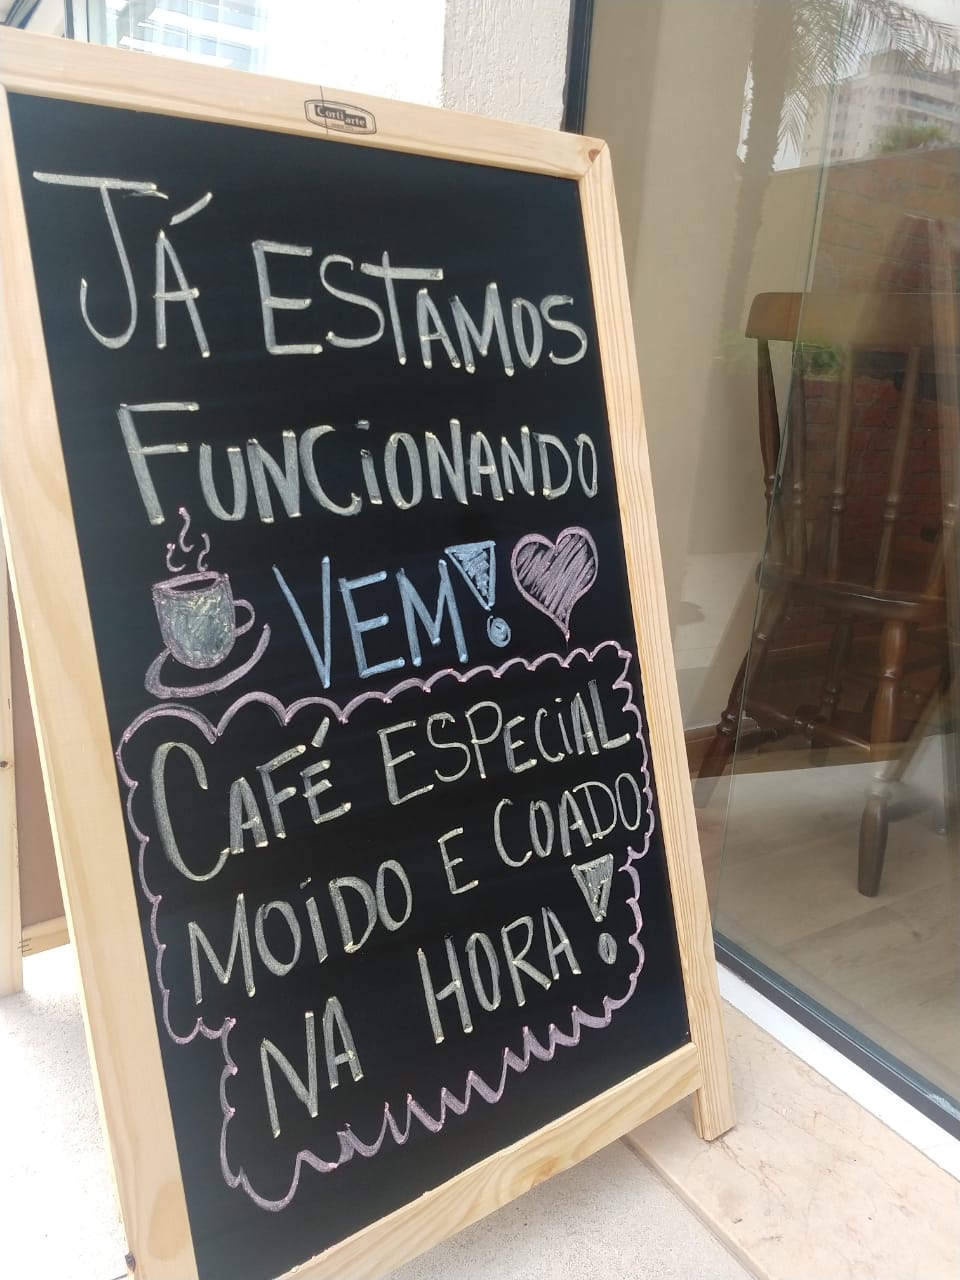 Corti arte
JÁ ESTAMOS
FUNCIONANDO
VEM!
CAFÉ ESPECIAL
MOÍDO E COADO
NA HORA!